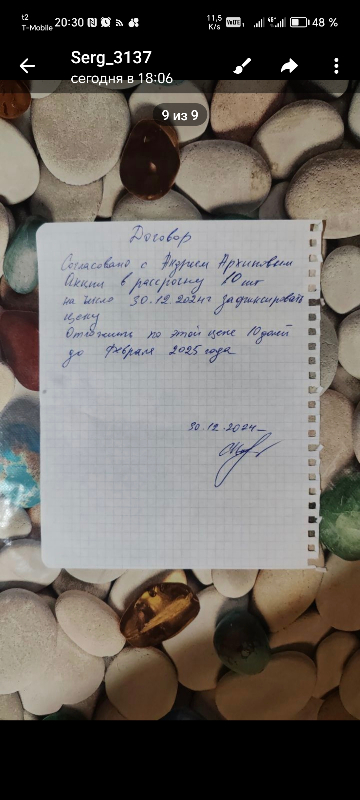 t2
T-Mobile
20:30
11,5
K/s
VoLTE
48 %
Serg_3137
сегодня в 18:06
9 из 9
Договор
Согласовано с Андреем Архиповым
Акции в рассрочку 10 шт
на число 30.12.2024г зафиксировать
цену
Отложить по этой цене 10 долей
до Февраля 2025 года
30.12.2024